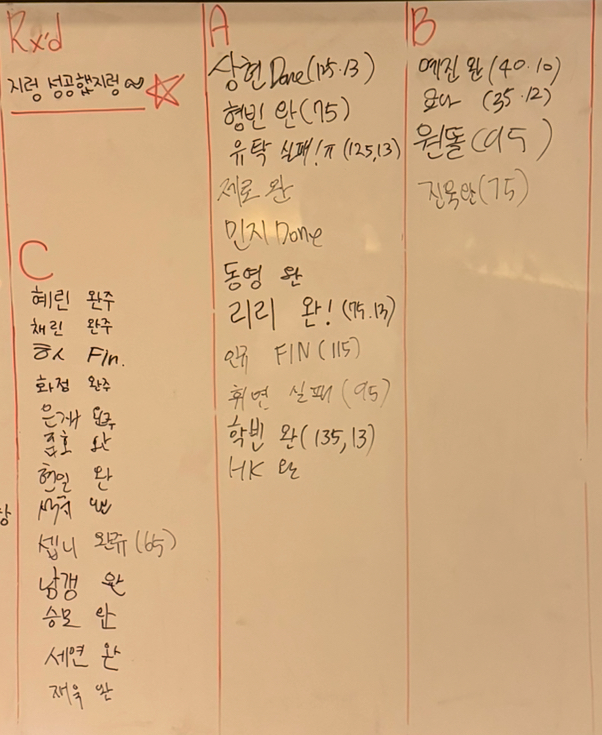 Rx'd
지렁 성공햅지렁~
A
상현 Done(125.13)
형빈 완(75)
유탁 실패!ㅠ(125,13)
제로 완
민지 Done
동영 완
리리 완!(75.13)
FIN(115)
휘연 실패(95)
학빈 완(135,13)
HK 완
B
예진 완(40.10)
요나 (35.12)
원돌(95)
진욱 완(75)
C
혜린 완주
채린 완주
Fin.
화정 완주
은개 완주
준호 완
현일 완
완
셉니 완쥬(65)
남갱 완
승모 완
세연 완
재욱 완